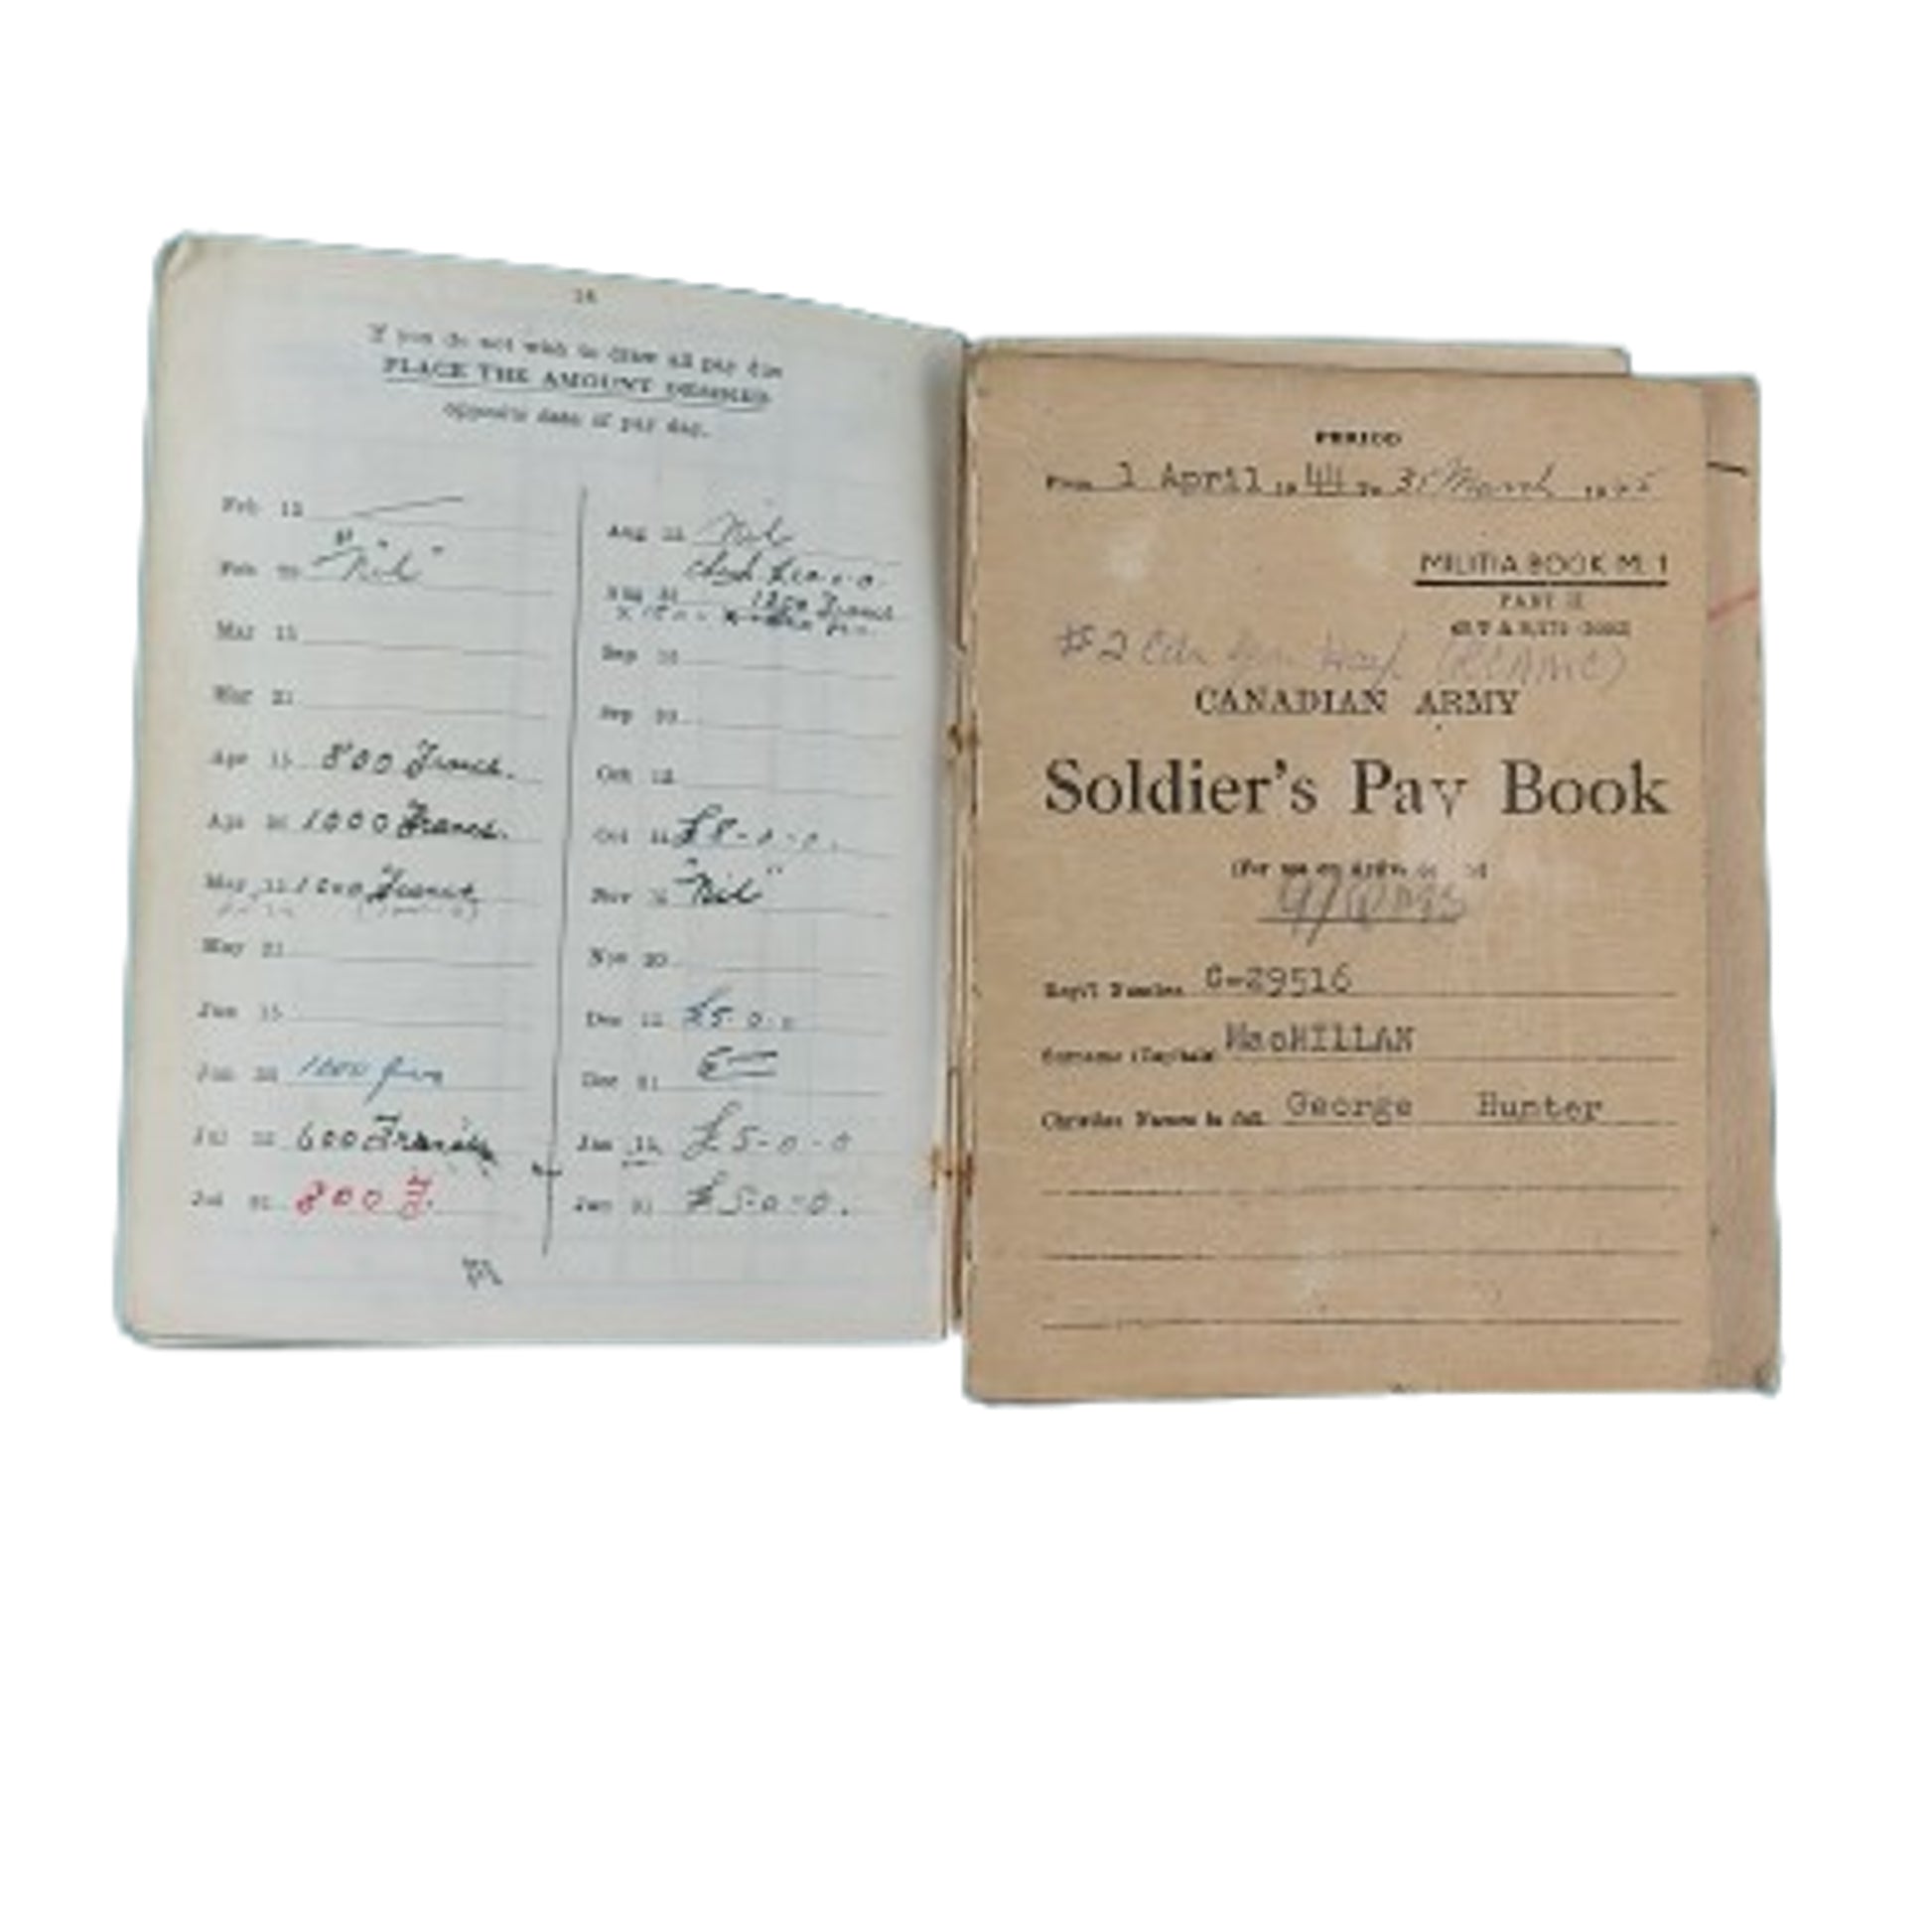 16
If you do not wish to draw all pay due
PLACE THE AMOUNT DESIRED
opposite date of pay day.
Feb 15
Feb "Nil"
Mar 15
Mar 31
Apr 15 800 Francs.
Apr 1000 Francs.
May 15 1000 Francs
May 31
Jun 15
Jun 1000
Jul 600 Francs
Jul 31 800 F.
Aug 15 Nil
Aug 31 1250 Francs
Sep 15
Sep 30
Oct 15
Oct 31 £8-0-0.
Nov 15 "Nil"
Nov 30
Dec 15 £5-0-0
Dec 31
Jan 15 £5-0-0
Jan 31 £5-0-0.
PERIOD
From 1 April 19 44 To 31 March 19 45
MILITIA BOOK M. 1
PART II
#2 Cdn Gen Hosp. (RCAMC)
CANADIAN ARMY
Soldier's Pay Book
(For use on
Reg't Number G-29516
Surname (Capitals) MacMILLAN
Christian Names in full George Hunter